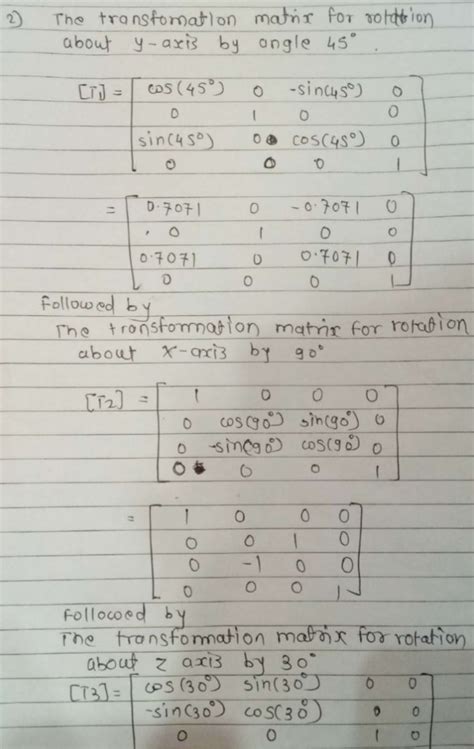 2) The transfomation matrix for rotation
about y-axis by angle 45°.
[T1] = [ cos(45°) 0 -sin(45°) 0
0 1 0 0
sin(45°) 0 cos(45°) 0
0 0 0 1 ]
= [ 0.7071 0 -0.7071 0
0 1 0 0
0.7071 0 0.7071 0
0 0 0 1 ]
followed by
The transformation matrix for rotation
about x-axis by 90°
[T2] = [ 1 0 0 0
0 cos(90°) sin(90°) 0
0 -sin(90°) cos(90°) 0
0 0 0 1 ]
= [ 1 0 0 0
0 0 1 0
0 -1 0 0
0 0 0 1 ]
followed by
The transformation matrix for rotation
about z axis by 30°
[T3] = [ cos(30°) sin(30°) 0 0
-sin(30°) cos(30°) 0 0
0 0 1 0